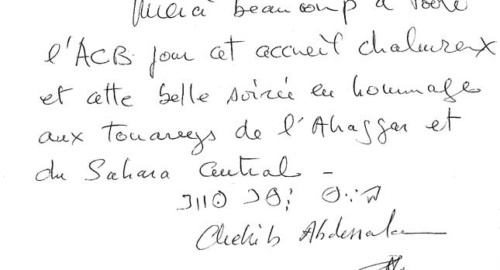 Merci beaucoup à toute
l'ACB pour cet accueil chaleureux
et cette belle soirée en hommage
aux Touaregs de l'Ahaggar et
du Sahara Central -
Chekib Abdessalam